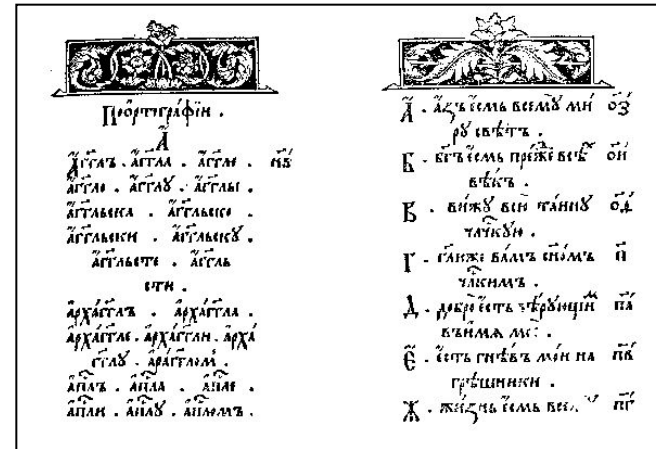 По ѻ҆ртогра́фїи .
А҆
А҆́гг҃лъ . а҆́гг҃ла . а҆́гг҃ле . нв҃
а҆́гг҃ло . а҆́гг҃лу . а҆́гг҃лы .
а҆́гг҃льска . а҆́гг҃льско .
а҆́гг҃льски . а҆́гг҃льску .
а҆́гг҃льсте . а҆́гг҃ль
сти .
а҆рха́гг҃лъ . а҆рха́гг҃ла .
а҆рха́гг҃ле . а҆рха́гг҃ли . а҆рха́
гг҃лу . а҆ра́гг҃лом .
а҆пⷭ҇лъ . а҆пⷭ҇ла . а҆пⷭ҇ле .
а҆пⷭ҇ли . а҆пⷭ҇лу . а҆пⷭ҇ломъ .
А҆ . а҆́зъ є҆́смь всемꙋ̀ ми́ ѻ҃з
рꙋ свѣ́тъ .
Б . бг҃ъ є҆́смь пре́же всѣ́ ѻ҃и
вѣ́къ .
В . ви́жꙋ всю̀ та́инꙋ ѻ҃д
члч҃кꙋю .
Г . гл҃ю же ва́мъ сн҃о́мъ п҃
члч҃кимъ .
Д . добро̀ є҆́сть вѣ́рꙋющим п҃а
въ и́мѧ моѐ :
Є҆ . є҆́сть гнѣ́въ мо́и на п҃в
грѣ́шники .
Ж . жи́знь є҆́смь п҃г